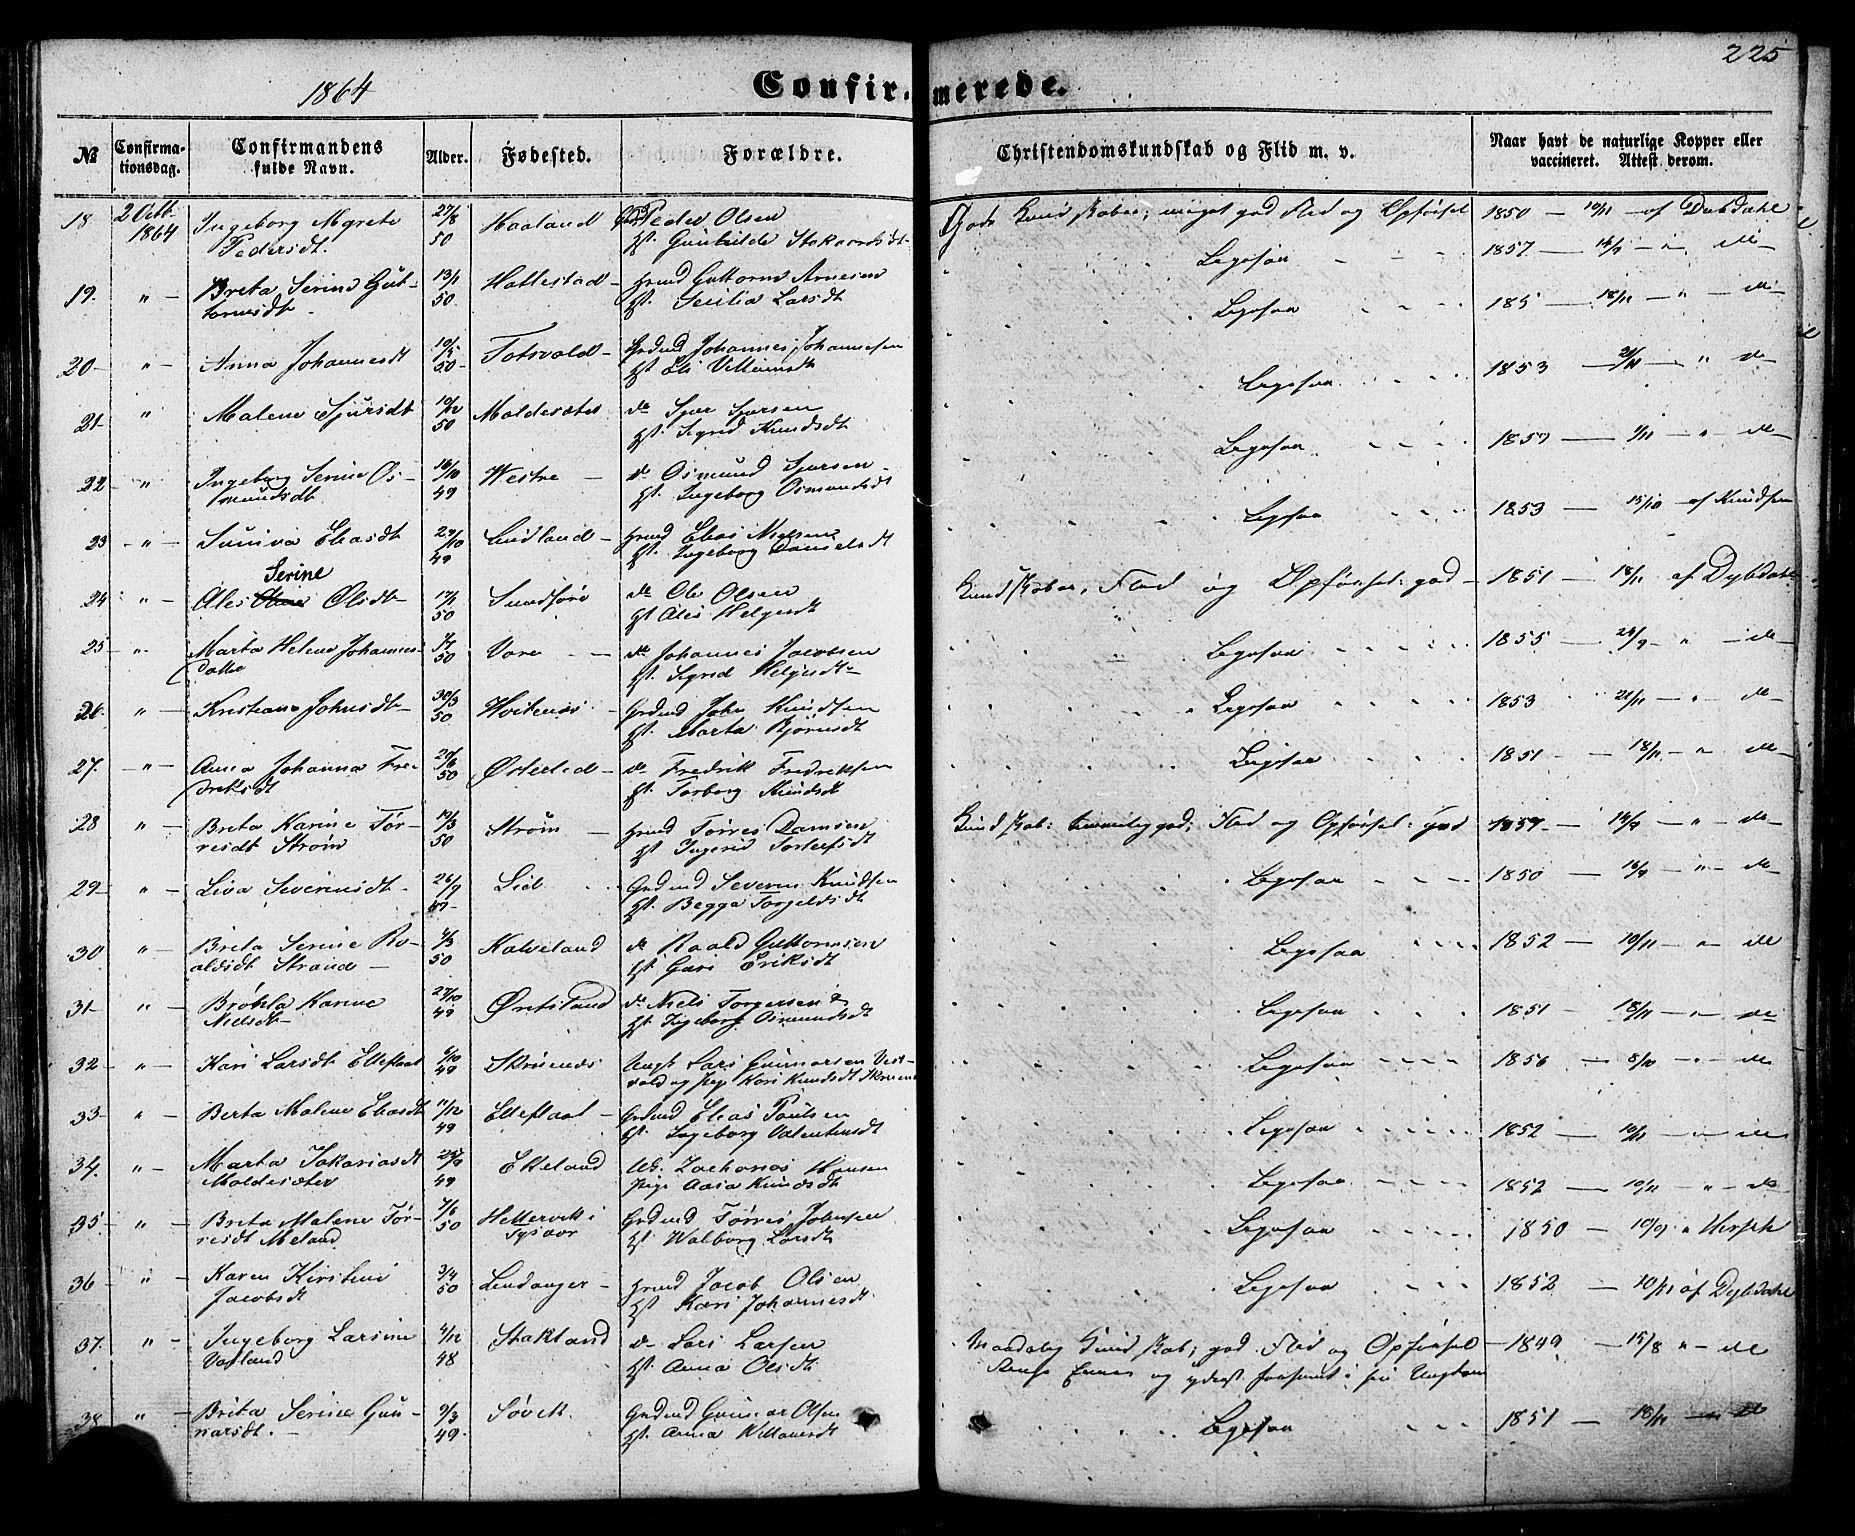 225
1864
Confirmerede.
№
Confirmationsdag.
Confirmandens fulde Navn.
Alder.
Fødested.
Forældre.
Christendomskundskab og Flid m. v.
Naar havt de naturlige Kopper eller vaccineret. Attest derom.
18 2 Octb. 1864 Ingeborg Mgrete Pedersdt. 27/8 50 Haaland Peder Olsen
Gode Kundskaber; meget god Flid og Opførsel 1850 – 19/11 – af Dybdahl
19. " Brita Serine Guttormsdt 13/1 50 Hattestad Guttorm Arnesen
Hst. Secilia Larsdt
Ligesaa 1857
20 " Anna Johannesdt 50 Grdmd Johannes Johannesen
Ligesaa
21 " Malene Sjursdt 19/12 50 Maldesæter do Sjur Sjursen
Hst. Sigrid Knudsdt
Ligesaa 1853 21/11 " do
22 " Ingeborg Serine Osmundsdt 16/10 49 Westre do Osmund Sjursen
Hst. Ingeborg Osmundsdt
Ligesaa
23 " Suniva Eliasdt 49 Lindland Hmd Elias Nielsen
Hst. Ingeborg Danielsdt
Ligesaa 1853 15/10 af Knudsen
24 " Ales Serine Olsdt 17/1 50 Sundføre do Ole Olsen
Hst Ales Helgesdt
Kundskaber, Flid og Opførsel: god 1851 – 18/11 af Dybdahl
25 " Marta Helene Johannesdatter 50 Vore do Johannes Jacobsen
Hst. Sigrid Helgesdt
Ligesaa 1855 – 24/9 " do
26. " Kristiane Johnsdt 30/3 50 Grdmd John Knudsen
Hst. Marta Bjørnsdt
Ligesaa 1853 21/11 – " do
27. " Anna Johanna Fredriksdt 29/6 50 Østerlid do Fredrik Fredriksen
Hst. Torborg Knudsdt
Ligesaa 1851 – 18/11 – " do
28 " Brita Karine Tørresdt Strøm 19/3 50 Strøm Hmd Tørres Damsen
Hst Ingerid Torleifsdt
Kundskab: temmelig god; Flid og Opførsel: god
29 " Liva Severinsdt. 26/9 49 Lid Grdmd Severin Knudsen
Hst. Begga Torgelsdt
Ligesaa 1850 – 16/9 " do
30 " Brita Serine Roaldsdt Strand 4/3 50 Kalveland do Roald Guttormsen
Hst Guri Eriksdt
Ligesaa 1852 – 19/11 – " – do
31 " Brøhla Karine Nielsdt 27/10 49 do Niels Torgersen
Hst. Ingeborg Osmundsdt
Ligesaa 1851 – 18/11 – " do
32 " Kari Larsdt Elleflaat 6/10 49 Skruenes Ungk Lars Gunnarsen Vestvold og Pige Kari Knudsdt Skruenes
Ligesaa 1856 – 8/10 – " – do
33 " Berta Malene Eliasdt 11/12 49 Elleflaat Grdmd Elias Paulsen
Hst. Ingeborg Valentinsdt
Ligesaa 1852 – 19/11 " do
34. " Marta Sakariasdt Maldesæter 49 Ekeland Zacharias Hansen
Pige Aasa Knudsdt
Ligesaa 1852 – 19/11 – " do
35. " Brita Malene Tørresdt Meland 7/6 50 Hettervik i Tysvær Grdmd Tørres Johnsen
Hst Walborg Larsdt
Ligesaa 1850 – 10/9
36 " Karen Kirstine Jacobsdt 3/4 50 Lindanger Hmd Jacob Olsen
Hst. Kari Johannesdt.
Ligesaa 1852 – af Dybdahl
37. " Ingeborg Larsine Vasland 4/12 48 Stakland do Lars Larsen
Hst. Anna Olsdt
Maadelig Kundskab; god Flid og Opførsel – 1849 – 15/8 " – do
38 " Brita Serine Gunnarsdt. 9/3 49. Søvik Grdmd Gunnar Olsen
Hst. Anna Villumsdt
Ligesaa 1851 – 18/11 do